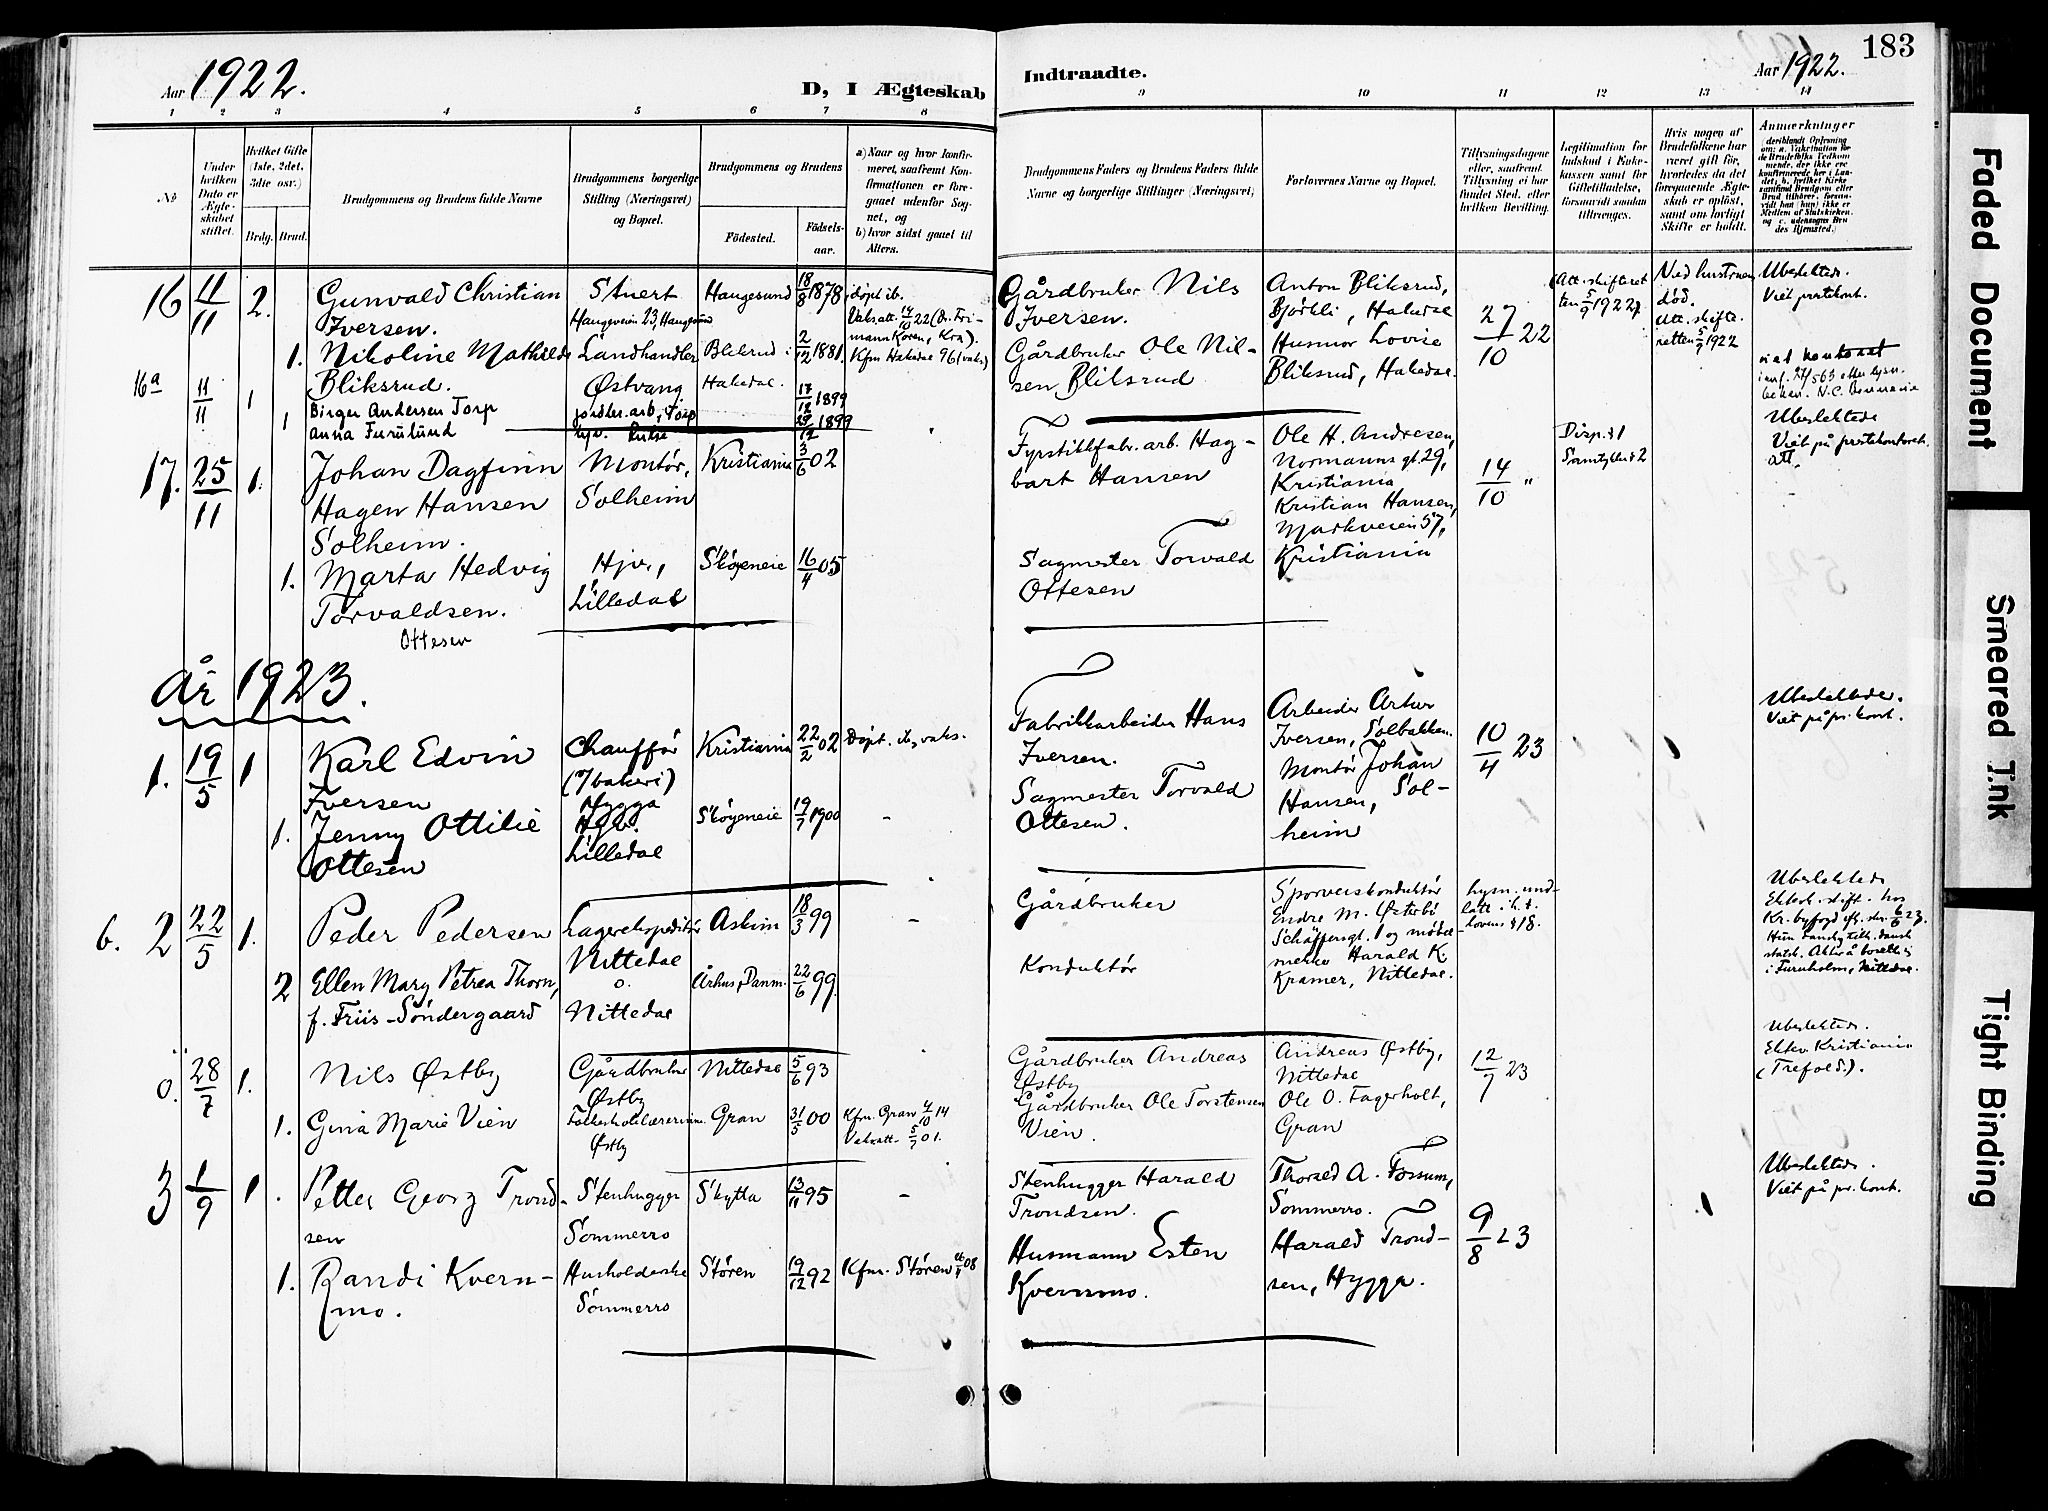 Aar 1922.
D, I Ægteskab
Indtraadte.
Aar 1922.
183
1 2 3 4 5 6 7 8 9 10 11 12 13 14
No
Under hvilken Dato er Ægteskabet stiftet.
Hvilket Gifte (1ste, 2det, 3die osv.)
Brdg. Brud.
Brudgommens og Brudens fulde Navne
Brudgommens borgerlige Stilling (Næringsvei) og Bopæl.
Brudgommens og Brudens
Fødested.
Fødselsaar.
a) Naar og hvor konfirmeret, saafremt Konfirmationen er foregaaet udenfor Sognet, og
b) hvor sidst gaaet til Alters.
Brudgommens Faders og Brudens Faders fulde Navne og borgerlige Stillinger (Næringsvei)
Forlovernes Navne og Bopæl.
Tillysningsdagene eller, saafremt Tillysning ei har fundet Sted, eller hvilken Bevilling.
Legitimation for Indskud i Enkekassen samt for Giftetilladelse, forsaavidt saadan tiltrænges.
Hvis nogen af Brudefolkene har været gift før, hvorledes da det foregaaende Ægteskab er opløst, samt om lovligt Skifte er holdt.
Anmærkninger
16 11/11 2. Gunvald Christian Stuert Haugesund 18/8 1878 døpt ib.
Iversen. Haugeveien 23, Haugesund Vaks.att. 14/10 22 (Dr. Tri-
mann Koren, Kra).
1. Nikoline Mathilde Landhandler Bliksrud i 2/12 1881. Kfm Hakedal 96 (vaks)
Bliksrud. Østvang Hakedal.
Gårdbruker Nils Anton Bliksrud,
Iversen. Bjørkli, Hakedal 27/10 22
Gårdbruker Ole Nil- Husmor Lovise
sen Bliksrud Bliksrud, Hakedal.
(Att. skifteret
ten 5/9 1922)
Ved hustruens
død.
Att. skifte-
retten 5/9 1922
Ubeslektede.
Viet prestekont.
16a 11/11 1 Birger Andersen Torp jordbr.arb., Torp 17/12 1899
1 Anna Furulund hjv. 1899
17. 25/11 1. Johan Dagfinn Montør, Kristiania 3/6 02
Hagen Hansen Solheim
Solheim.
1. Marta Hedvig Hjv., Skøyeneie 16/4 05
Torvaldsen. Lilledal
Ottesen
Fyrstikkfabr. arb. Hag- Ole H. Andresen,
bart Hansen Normanns gt. 29,
Kristiania 14/10 "
Kristian Hansen,
Markveien 57,
Sagmester Torvald Kristiania
Ottesen
Disp. § 1
Samtykke § 2
Ubeslektede
Viet på prestekontoret.
att.
År 1923.
1. 19/5 1 Karl Edvin Chauffør Kristiania 22/2 02 Døpt. ib, vaks.
Iversen (i bakeri)
Hygga
1. Jenny Ottilie Hjv. Skøyeneie 19/7 1900 -
Ottesen Lilledal
Fabrikkarbeider Hans Arbeider Artur
Iversen. Iversen, Solbakken. 10/4 23
Sagmester Torvald Montør Johan
Ottesen. Hansen, Sol-
heim
Ubeslektede.
Viet på pr. kont.
b. 2 22/5 1. Peder Pedersen Lagerekspeditør Askim 18/3 99 -
Nittedal
2 Ellen Mary Petrea Thorn, o. Århus, Danm. 22/6 99.
f. Friis-Søndergaard Nittedal
Gårdbruker Sporveiskonduktør
Endre M. Østerbø
Schäffersgt. 1 og møbel-
Konduktør Harald K.
Kramer, Nittedal.
lysn. und-
latt i h. t.
lovens § 18.
Ubeslektede
i Furuholm, Nittedal.
0. 28/7 1. Nils Østby Gårdbruker Nittedal 5/6 93
Østby
1. Gina Marie Vien Folkeskolelærerinne Gran 31/5 00 Kfm. Gran 4/10 14
Østby Vaksatt. 5/7 01.
Gårdbruker Andreas Andreas Østby, 12/7 23
Østby Nittedal
Gårdbruker Ole Torstensen Ole O. Fagerholt,
Vien. Gran
Ubeslektede.
Ektev. Kristiania
(Trefold.).
3 1/9 1. Petter Georg Trond- Stenhugger Skytta 13/11 95 -
sen Sommerro
1. Randi Kvern- Husholderske Støren 19/12 92 Kfm. Støren 08
mo. Sommerro
Stenhugger Harald Thorald A. Fossum,
Trondsen. Sommerro.
Husmann Esten Harald Trond- 9/8 23
Kvernmo. sen, Hygga.
Ubeslektede.
Viet på pr. kont.
Faded Document
Smeared Ink
Tight Binding